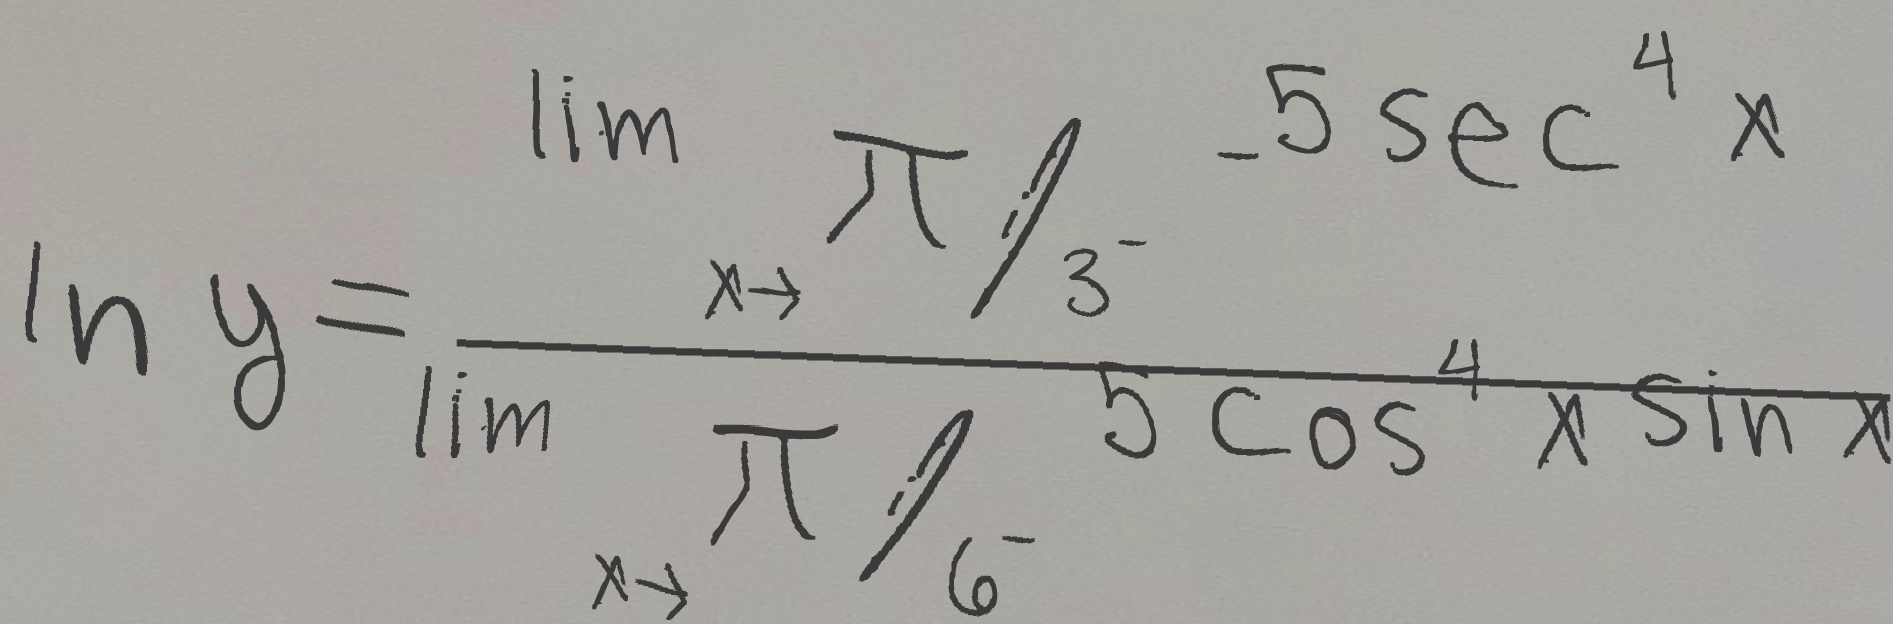 ln y = \frac{\lim_{x \to \pi/3^-} -5 sec^4 x}{\lim_{x \to \pi/6^-} 5 cos^4 x sin x}